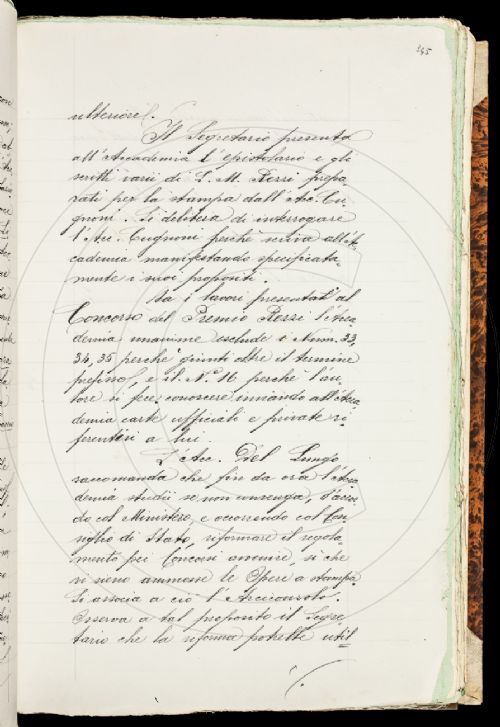 345
ulteriore.
Il Segretario presenta
all'Accademia l'epistolario e gli
scritti varii di L. M. Rezzi prepa-
rati per la stampa dall'Acc. Cu-
gnoni. Si delibera di interrogare
l'Acc. Cugnoni perchè scriva all'Ac-
cademia manifestando specificata-
mente i suoi propositi.
Tra i lavori presentati al
Concorso del Premio Rezzi l'Acca-
demia unanime esclude i Num. 33,
34, 35 perchè giunti oltre il termine
prefisso, e il N.o 16 perchè l'au-
tore si fece conoscere inviando all'Acca-
demia carte ufficiali e private ri-
ferentisi a lui.
L'Acc. Del Lungo
raccomanda che fin da ora l'Acca-
demia studii se non convenga, d'accor-
do col Ministero, e occorrendo col Con-
siglio di Stato, riformare il regola-
mento pei Concorsi avvenire, sì che
vi sieno ammesse le Opere a stampa.
Si associa a ciò l'Arciconsolo.
Osserva a tal proposito il Segre-
tario che la riforma potrebbe util-